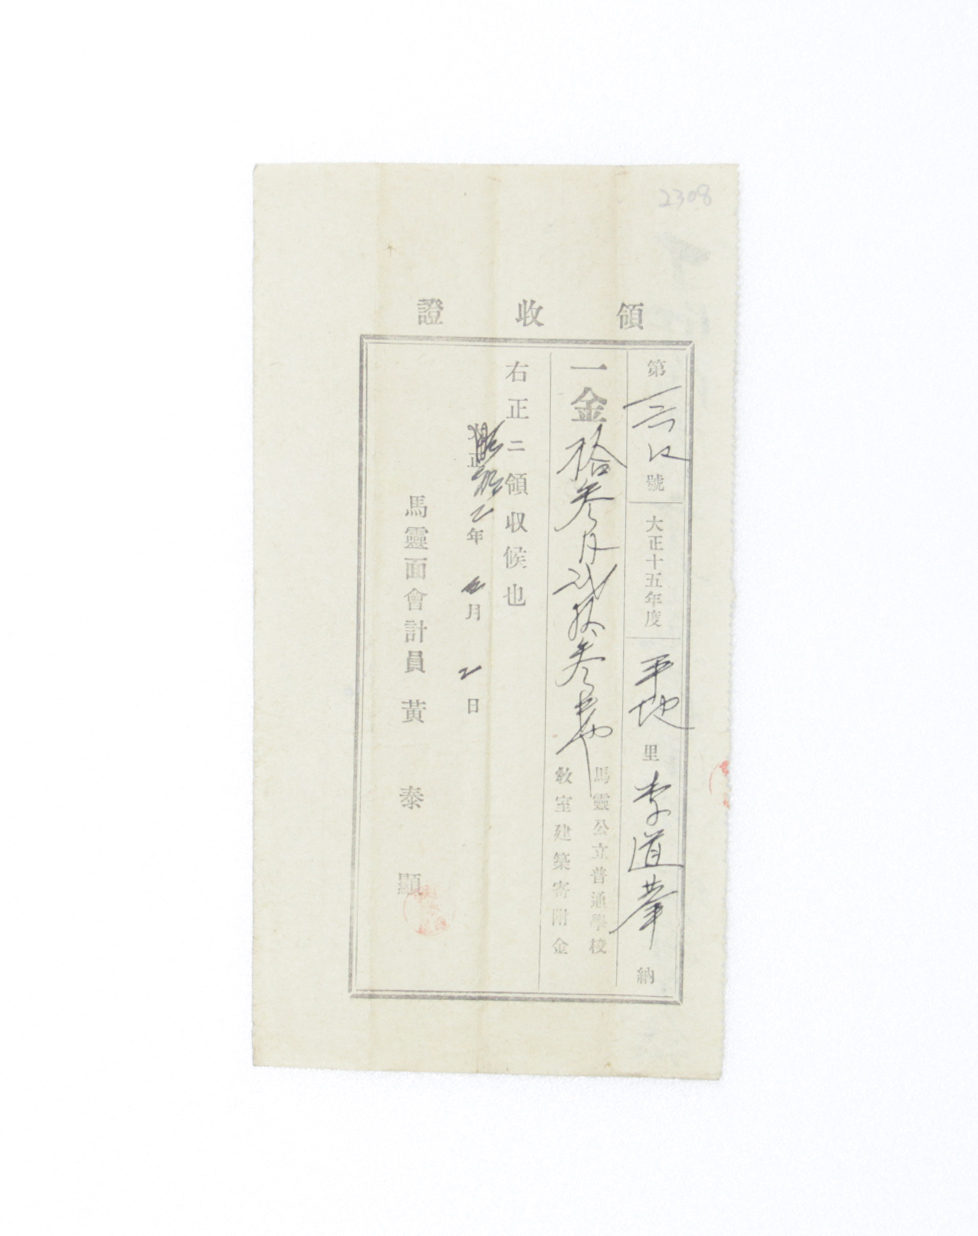 2308
領收證
第 號 大正十五年度 平地里 李道 納
一金 拾叁円 拾叁 馬靈公立普通學校
敎室建築寄附金
右正ニ領収候也
昭和二年 月 日
馬靈面會計員 黃泰顯